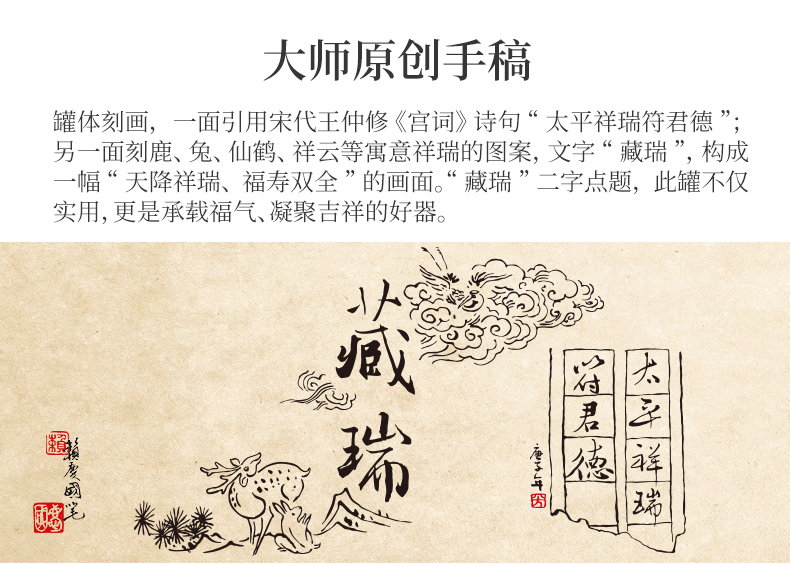 大师原创手稿
罐体刻画，一面引用宋代王仲修《宫词》诗句“太平祥瑞符君德”；
另一面刻鹿、兔、仙鹤、祥云等寓意祥瑞的图案，文字“藏瑞”，构成
一幅“天降祥瑞、福寿双全”的画面。“藏瑞”二字点题，此罐不仅
实用，更是承载福气、凝聚吉祥的好器。
太平祥瑞
符君德
庚子年
藏瑞
賴慶國筆
賴